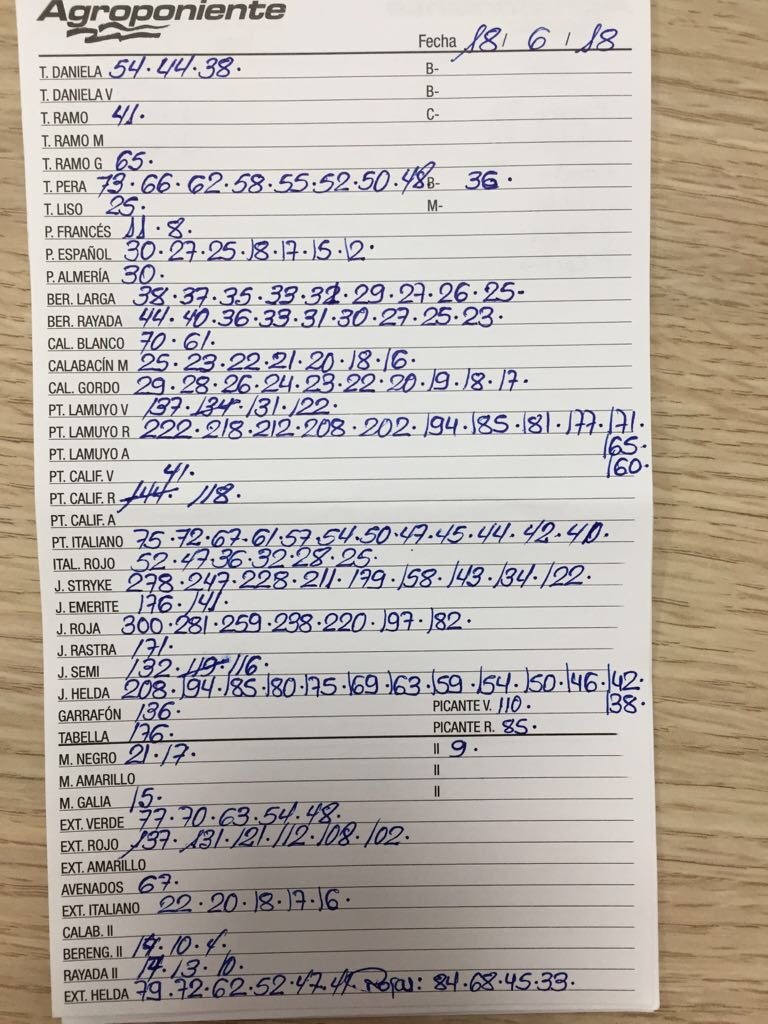 Agroponiente
Fecha 18 / 6 / 18
T. DANIELA 54·44·38· B-
T. DANIELA V B-
T. RAMO 41· C-
T. RAMO M
T. RAMO G 65·
T. PERA 73·66·62·58·55·52·50·48 B- 36·
T. LISO 25· M-
P. FRANCÉS 11·8·
P. ESPAÑOL 30·27·25·18·17·15·12·
P. ALMERÍA 30·
BER. LARGA 38·37·35·33·32·29·27·26·25-
BER. RAYADA 44·40·36·33·31·30·27·25·23·
CAL. BLANCO 70·61·
CALABACÍN M 25·23·22·21·20·18·16·
CAL. GORDO 29·28·26·24·23·22·20·19·18·17·
PT. LAMUYO V 137·134·131·122·
PT. LAMUYO R 222·218·212·208·202·194·185·181·177·171·
PT. LAMUYO A 165·
PT. CALIF. V 41· 160·
PT. CALIF. R 144· 118·
PT. CALIF. A
PT. ITALIANO 75·72·67·61·57·54·50·47·45·44·42·40·
ITAL. ROJO 52·47·36·32·28·25·
J. STRYKE 278·247·228·211·179·158·143·134·122·
J. EMERITE 176·141·
J. ROJA 300·281·259·238·220·197·182·
J. RASTRA 171·
J. SEMI 132·119·116·
J. HELDA 208·194·185·180·175·169·163·159·154·150·146·142·
GARRAFÓN 136· PICANTE V. 110· 138·
TABELLA 176· PICANTE R. 85·
M. NEGRO 21·17· II 9·
M. AMARILLO II
M. GALIA 15· II
EXT. VERDE 77·70·63·54·48·
EXT. ROJO 137·131·121·112·108·102·
EXT. AMARILLO
AVENADOS 67·
EXT. ITALIANO 22·20·18·17·16·
CALAB. II
BERENG. II 10·4·
RAYADA II 13·10·
EXT. HELDA 79·72·62·52·47·41 Rojas: 84·68·45·33·